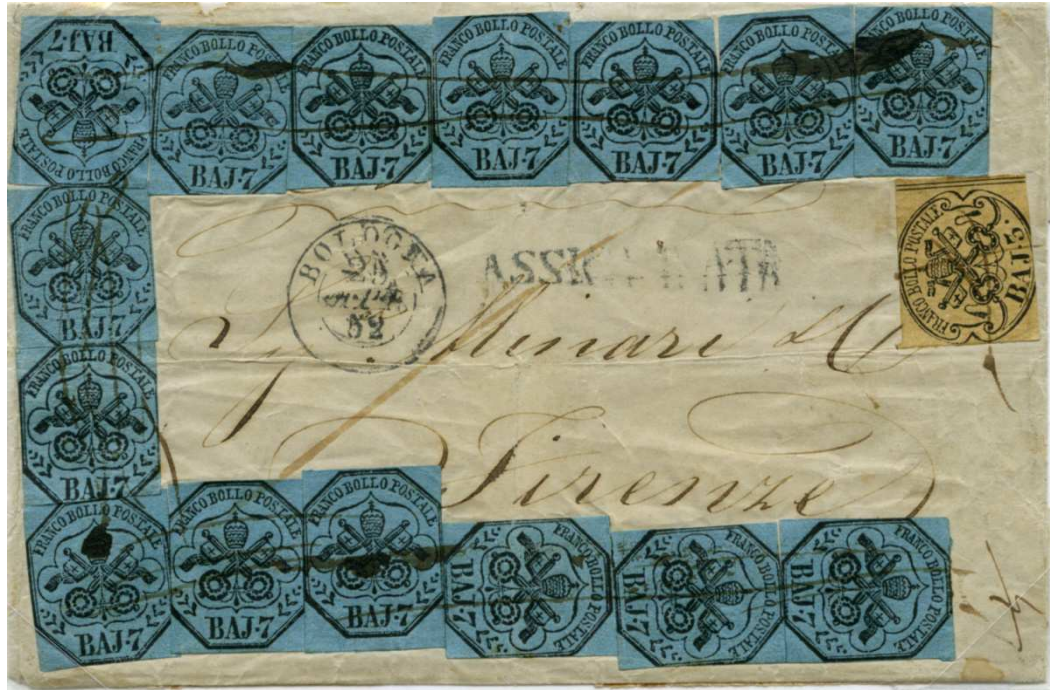 FRANCO BOLLO POSTALE
BAJ-7
FRANCO BOLLO POSTALE
BAJ-7
FRANCO BOLLO POSTALE
BAJ-7
FRANCO BOLLO POSTALE
BAJ-7
FRANCO BOLLO POSTALE
BAJ-7
FRANCO BOLLO POSTALE
BAJ-7
FRANCO BOLLO POSTALE
BAJ-7
FRANCO BOLLO POSTALE
BAJ-7
FRANCO BOLLO POSTALE
BAJ-5
BOLOGNA
52
ASSICURATA
Minari & C
Firenze
FRANCO BOLLO POSTALE
BAJ-7
FRANCO BOLLO POSTALE
BAJ-7
FRANCO BOLLO POSTALE
BAJ-7
FRANCO BOLLO POSTALE
BAJ-7
FRANCO BOLLO POSTALE
BAJ-7
FRANCO BOLLO POSTALE
BAJ-7
FRANCO BOLLO POSTALE
BAJ-7